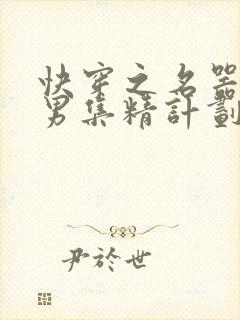 快穿之名器
男集精計劃
尹於世